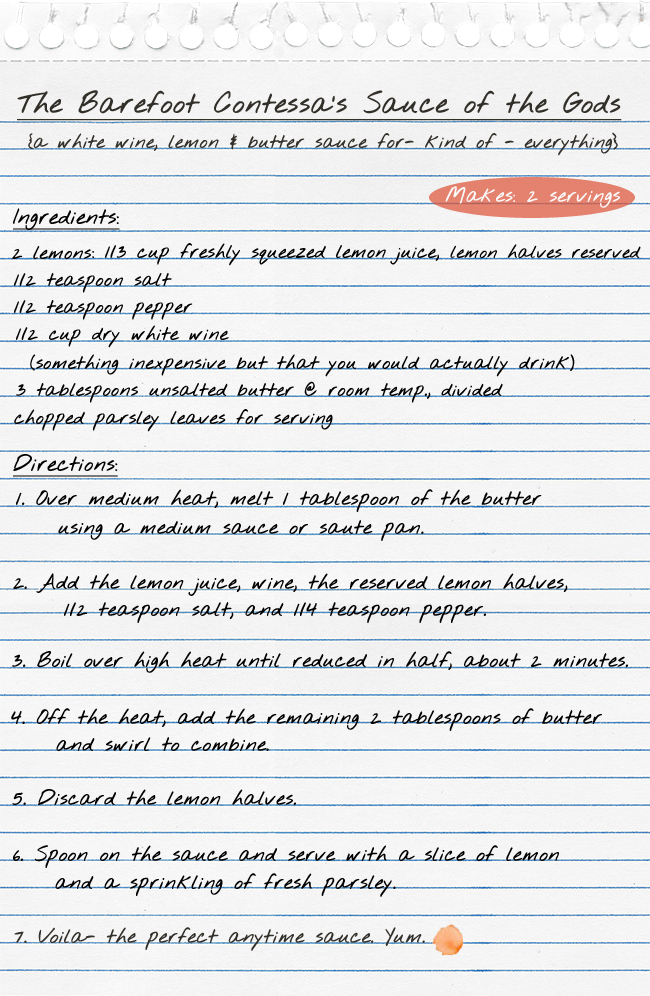 The Barefoot Contessa's Sauce of the Gods
{a white wine, lemon & butter sauce for- kind of - everything}
Makes: 2 servings
Ingredients:
2 lemons: 1/3 cup freshly squeezed lemon juice, lemon halves reserved
1/2 teaspoon salt
1/2 teaspoon pepper
1/2 cup dry white wine
(something inexpensive but that you would actually drink)
3 tablespoons unsalted butter @ room temp., divided
chopped parsley leaves for serving
Directions:
1. Over medium heat, melt 1 tablespoon of the butter
using a medium sauce or saute pan.
2. Add the lemon juice, wine, the reserved lemon halves,
1/2 teaspoon salt, and 1/4 teaspoon pepper.
3. Boil over high heat until reduced in half, about 2 minutes.
4. Off the heat, add the remaining 2 tablespoons of butter
and swirl to combine.
5. Discard the lemon halves.
6. Spoon on the sauce and serve with a slice of lemon
and a sprinkling of fresh parsley.
7. Voila- the perfect anytime sauce. Yum.